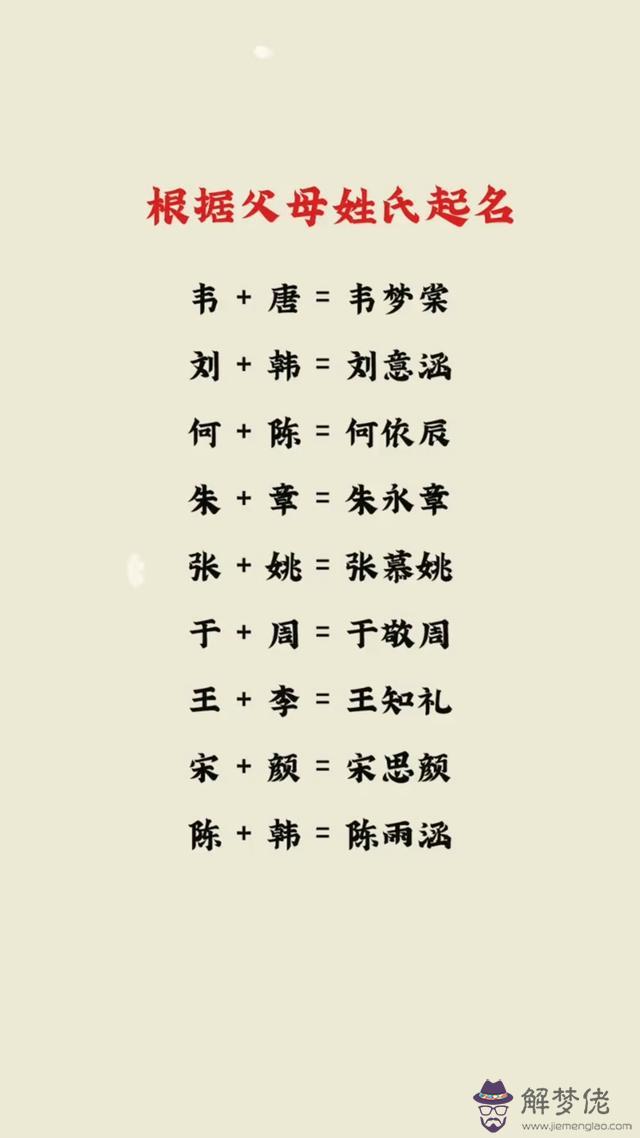 根据父母姓氏起名
韦 + 唐 = 韦梦棠
刘 + 韩 = 刘意涵
何 + 陈 = 何依辰
朱 + 章 = 朱永章
张 + 姚 = 张慕姚
于 + 周 = 于敬周
王 + 李 = 王知礼
宋 + 颜 = 宋思颜
陈 + 韩 = 陈雨涵
解梦佬
www.jiemenglao.com